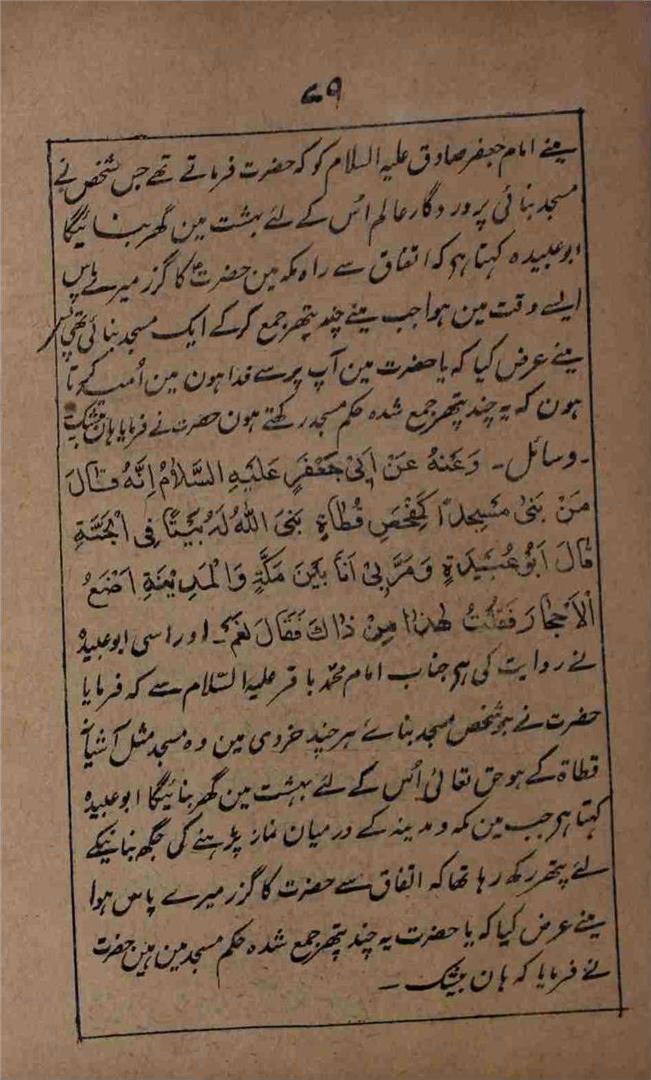 ۶۹
مینے امام جعفر صادق علیہ السلام کو کہ حضرت فرماتے تھے جس شخص نے
مسجد بنائی پروردگار عالم اُس کے لئے بہشت مین گھر بنائیگا
ابو عبیدہ کہتا ہی کہ اتفاق سے راہ مکہ مین حضرتؑ کا گزر میرے پاس
ایسے وقت مین ہوا جب مینے چند پتھر جمع کرکے ایک مسجد بنائی تھی پس
مینے عرض کیا کہ یا حضرت مین آپ پر سے فدا ہون مین اُمید کرتا
ہون کہ یہ چند پتھر جمع شدہ حکم مسجد رکھتے ہون حضرت نے فرمایا ہان بیشک
۔وسائل۔ وَعَنْهُ عَنْ اَبِیْ جَعْفَرٍ عَلَیْهِ السَّلَامُ اِنَّهُ قَالَ
مَنْ بَنیٰ مَسْجِدًا کَمَفْحَصِ قُطَاةٍ بَنَی اللهُ لَهُ بَیْتًا فِی الْجَنَّةِ
قَالَ اَبُوْ عُبَیْدَةٍ وَمَرَّ بِیْ اَنَا بَیْنَ مَکَّةٍ وَالْمَدِیْنَةِ اَضَعُ
الْاَحْجَارَ فَقُلْتُ هٰذَا مِنْ ذَاكَ فَقَالَ نَعَمْ۔ اور اسی ابو عبیدہ
نے روایت کی ہی جناب امام محمد باقر علیہ السّلام سے کہ فرمایا
حضرت نے جو شخص مسجد بنائے ہر چند خردی مین وہ مسجد مثل آشیانے
قطاة کے ہو حق تعالیٰ اُس کے لئے بہشت مین گھر بنائیگا ابو عبیدہ
کہتا ہی جب مین مکہ و مدینہ کے درمیان نماز پڑہنے کی جگھ بنانیکے
لئے پتھر رکھ رہا تھا کہ اتفاق سے حضرت کا گزر میرے پاس ہوا
مینے عرض کیا کہ یا حضرت یہ چند پتھر جمع شدہ حکم مسجد مین ہین حضرت
نے فرمایا کہ ہان بیشک ۔